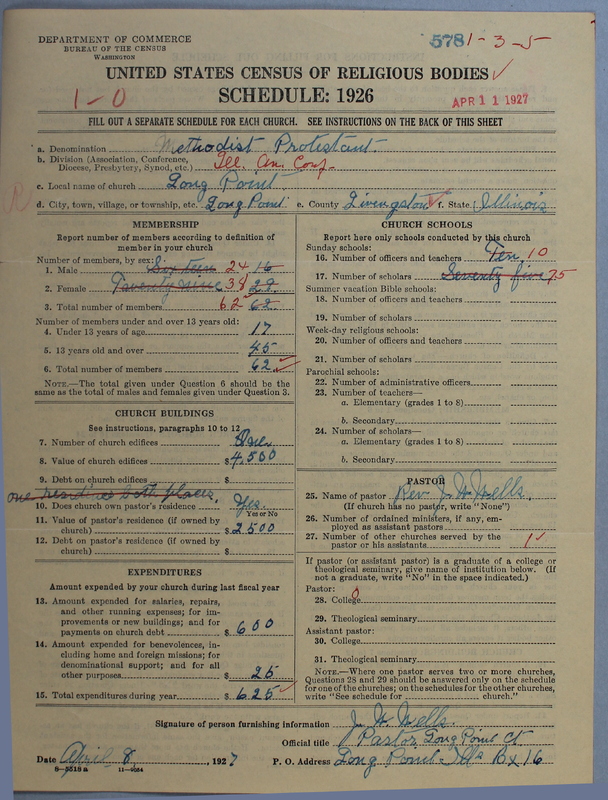 DEPARTMENT OF COMMERCE
BUREAU OF THE CENSUS
WASHINGTON
5781-3-5
UNITED STATES CENSUS OF RELIGIOUS BODIES ✓
SCHEDULE: 1926
1-0
APR 11 1927
FILL OUT A SEPARATE SCHEDULE FOR EACH CHURCH. SEE INSTRUCTIONS ON THE BACK OF THIS SHEET
a. Denomination Methodist Protestant
b. Division (Association, Conference, Diocese, Presbytery, Synod, etc.) Ill. An. Conf.
c. Local name of church Long Point
R
d. City, town, village, or township, etc. Long Point e. County Livingston f. State Illinois
MEMBERSHIP
Report number of members according to definition of
member in your church
Number of members, by sex:
1. Male Sixteen 24 16
2. Female Twenty nine 38 29
3. Total number of members 62 62
Number of members under and over 13 years old:
4. Under 13 years of age 17
5. 13 years old and over 45
6. Total number of members 62 ✓
NOTE.—The total given under Question 6 should be
same as the total of males and females given under Question 3.
CHURCH BUILDINGS
See instructions, paragraphs 10 to 12
7. Number of church edifices One
8. Value of church edifices $4,500
9. Debt on church edifices $
one residies both places
10. Does church own pastor's residence Yes.
Yes or No
11. Value of pastor's residence (if owned by
church) $2500
12. Debt on pastor's residence (if owned by
church) $
EXPENDITURES
Amount expended by your church during last fiscal year
13. Amount expended for salaries, repairs,
and other running expenses; for im-
provements or new buildings; and for
payments on church debt $600
14. Amount expended for benevolences, in-
cluding home and foreign missions; for
denominational support; and for all
other purposes $25
15. Total expenditures during year $625
CHURCH SCHOOLS
Report here only schools conducted by this church
Sunday schools:
16. Number of officers and teachers Ten 10
17. Number of scholars Seventy five 75
Summer vacation Bible schools:
18. Number of officers and teachers
19. Number of scholars
Week-day religious schools:
20. Number of officers and teachers
21. Number of scholars
Parochial schools:
22. Number of administrative officers
23. Number of teachers—
a. Elementary (grades 1 to 8)
b. Secondary
24. Number of scholars—
a. Elementary (grades 1 to 8)
b. Secondary
PASTOR
25. Name of pastor Rev. J. W. Wells.
(If church has no pastor, write "None")
26. Number of ordained ministers, if any, em-
ployed as assistant pastors
27. Number of other churches served by the
pastor or his assistants 1 ✓
If pastor (or assistant pastor) is a graduate of a college or
theological seminary, give name of institution below. (If
not a graduate, write "No" in the space indicated.)
Pastor:
28. College 0
29. Theological seminary
Assistant pastor:
30. College
31. Theological seminary
NOTE.—Where one pastor serves two or more churches,
Questions 28 and 29 should be answered only on the schedule
for one of the churches; on the schedules for the other churches,
write "See schedule for church."
Signature of person furnishing information J. W. Wells.
Official title Pastor, Long Point Ct
Date April 8, 1927 P. O. Address Long Point Ills Bx 16
8—5518a 11—9084